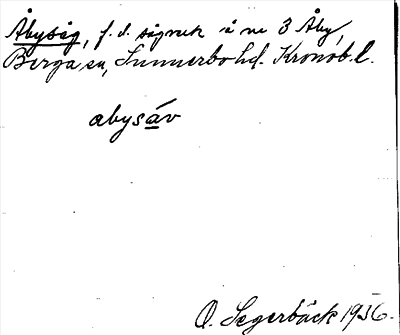 Åbysåg, f.d. sågverk å nr 3 Åby,
Berga sn, Sunnerbo hd. Kronob. l.
abysåv
O. Segerbäck 1936.